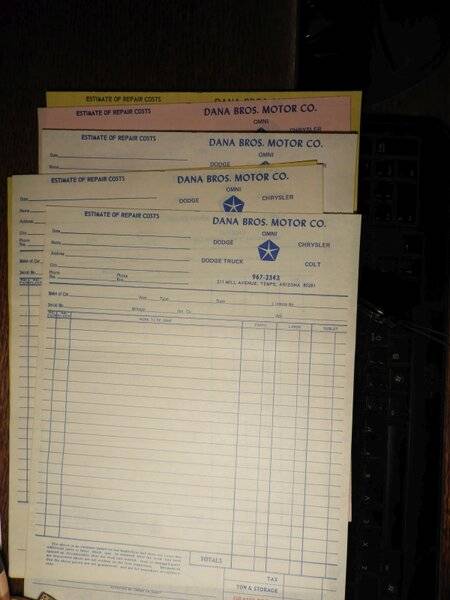 ESTIMATE OF REPAIR COSTS
ESTIMATE OF REPAIR COSTS DANA BROS. MOTOR CO.
OMNI
CHRYSLER
ESTIMATE OF REPAIR COSTS DANA BROS. MOTOR CO.
Date OMNI
DODGE CHRYSLER
Name
ESTIMATE OF REPAIR COSTS DANA BROS. MOTOR CO.
Date OMNI
DODGE CHRYSLER
Name
Address
City
Phone
Make of Car
Serial No.
ESTIMATE OF REPAIR COSTS DANA BROS. MOTOR CO.
Date OMNI
Name DODGE CHRYSLER
Address
City DODGE TRUCK COLT
Phone Phone
967-3343
211 MILL AVENUE, TEMPE, ARIZONA 85281
Make of Car Year Type State License No.
Serial No. Mileage Ins. Co.
WORK TO BE DONE PARTS LABOR SUBLET
TOTALS
TAX
TOW & STORAGE